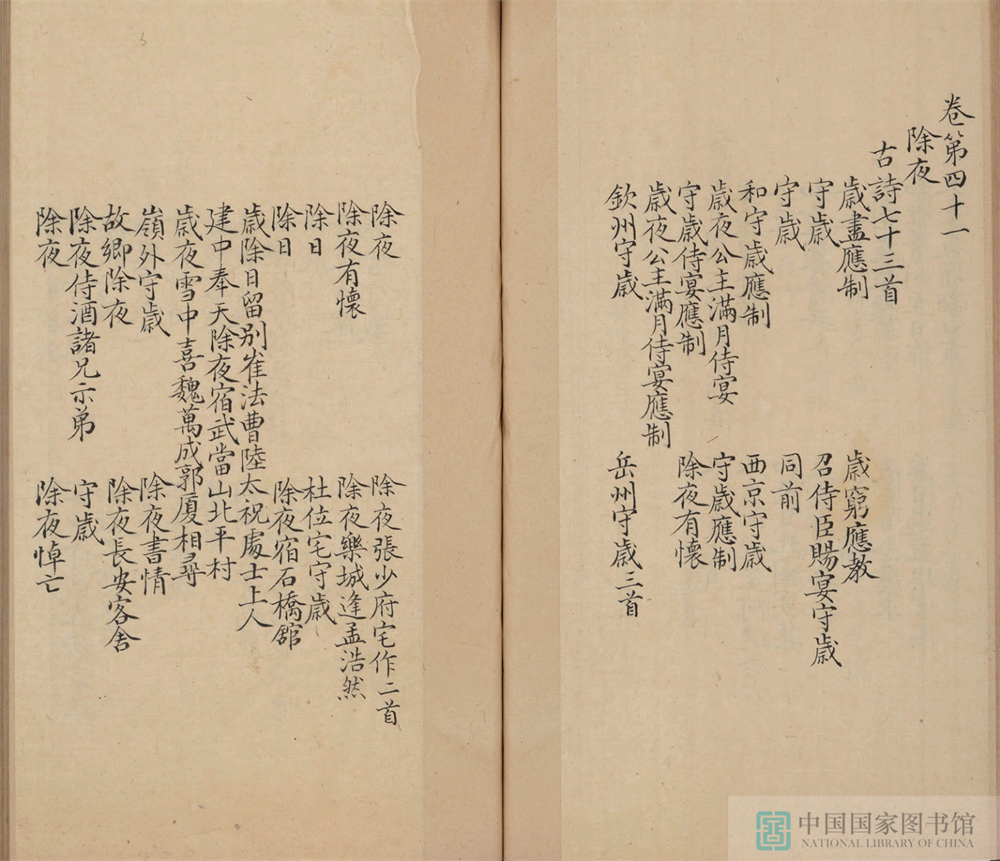 卷第四十一
除夜
古詩七十三首
歲盡應制 歲窮應教
守歲 召侍臣賜宴守歲
守歲 同前
和守歲應制 西京守歲
歲夜公主滿月侍宴 守歲應制
守歲侍宴應制 除夜有懷
歲夜公主滿月侍宴應制
欽州守歲 岳州守歲三首
除夜 除夜張少府宅作二首
除夜有懷 除夜樂城逢孟浩然
除日 杜位宅守歲
除日 除夜宿石橋館
歲除日留別崔法曹陸太祝處士上人
建中奉天除夜宿武當山北平村
歲夜雪中喜魏萬成郭廈相尋
嶺外守歲 除夜書情
故鄉除夜 除夜長安客舍
除夜侍酒諸兄示弟 守歲
除夜 除夜悼亡
中国国家图书馆
NATIONAL LIBRARY OF CHINA